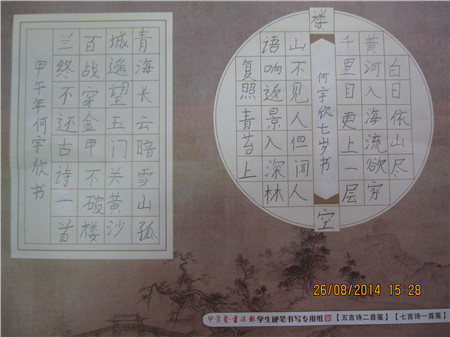 楼
白日依山尽
黄河入海流欲穷
千里目更上一层
何宇欣七岁书
空
山不见人但闻人
语响近景入深林
复照青苔上
青海长云暗雪山孤
城遥望玉门关黄沙
百战穿金甲不破楼
兰终不还古诗一首
甲午年何宇欣书
26/08/2014 15:28
书法报 学生硬笔书写专用纸 【五言诗二首笺】【七言诗一首笺】